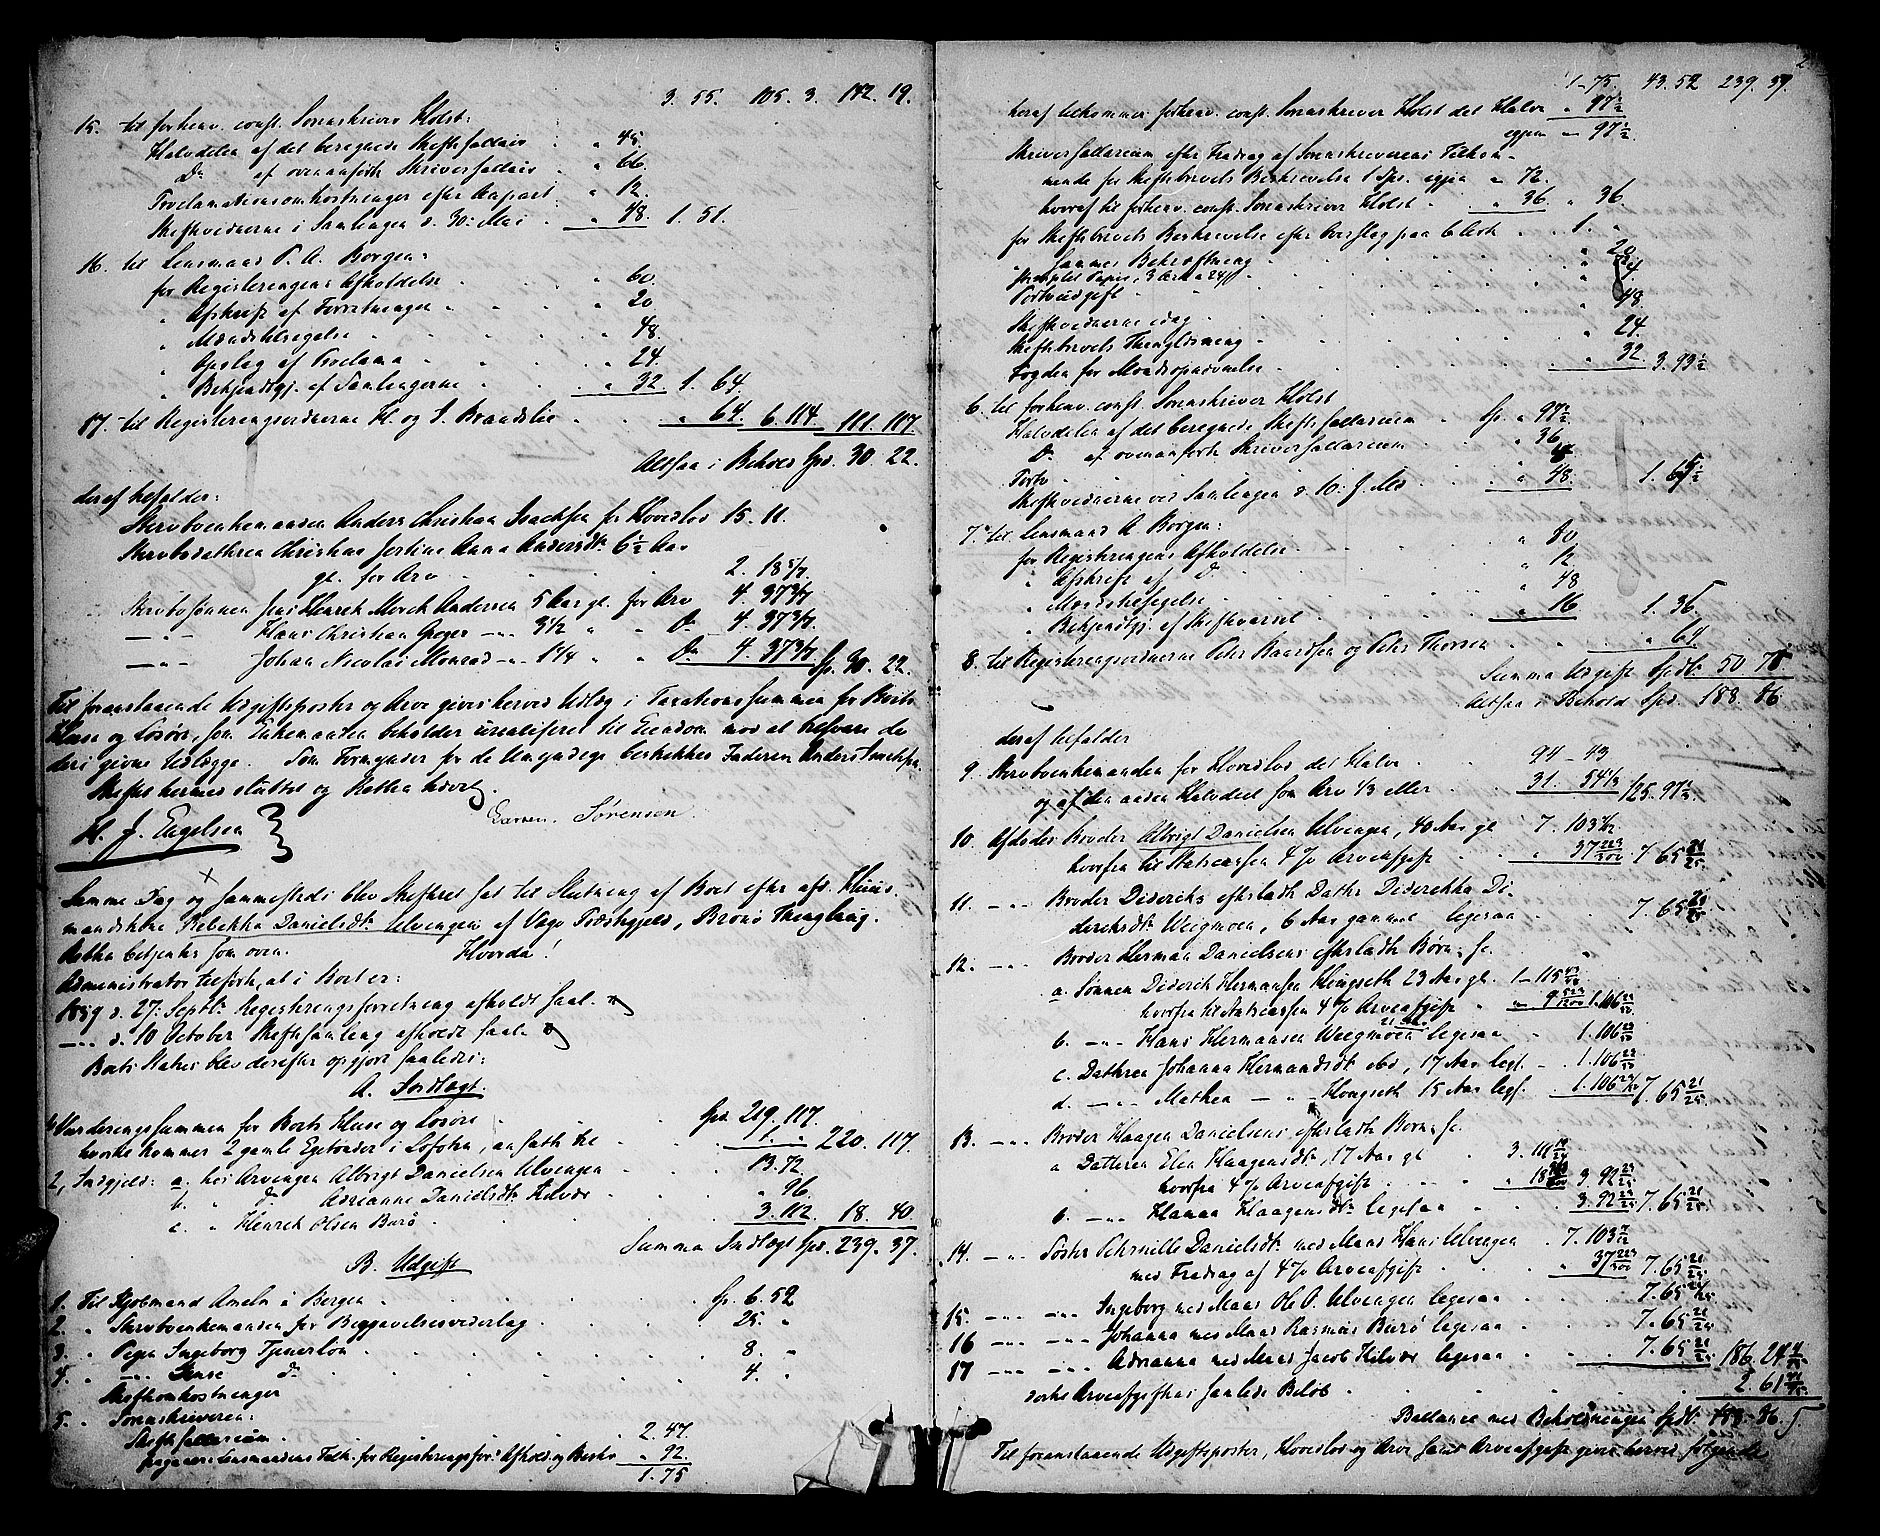 3. 55. 105. 3. 142. 19.
15. til forhenv. const. Sorenskriver Holst:
Halvdelen af det beregnede Skiftesallair . " 45.
Do af ovenanførte Skriversallair . " 66.
Proclamationsomkostninger efter Rapart . " 12.
Skiftevidnerne i Samlingen d. 30: Mai . " 48. 1. 51.
16. til Lensmand P. A. Borgen:
for Registreringens Afholdelse . . " 60.
" Afskrift af Forretningen . . " 20
" Mændstilsigelse . . . " 48.
" Opslag af Proclama . . . " 24.
" Bekjendtgj. af Samlingerne . . " 32. 1. 64.
17. til Registreringsvidnerne H. og S. Brandslie . . " 64. 6. 114. 111. 117.
Altsaa i Behold Spd. 30. 22.
deraf tilfalder:
Stervboenkemanden Anders Christian Isachsen for Hovedlod 15. 11.
Stervbodatteren Christine Jostine Anna Andersdtr 6½ Aar
gl. for Arv . . . 2. 18 5/7.
Stervbosønnen Jens Henrik Morck Andersen 5 Aar gl. for Arv 4. 37 3/7.
— " — Hans Christian Greger — " — 3½ " " Do 4. 37 3/7.
— " — Johan Nicolai Monrad — " — 1¼ " " Do 4. 37 3/7. Sp. 30. 22.
Til foranstaaende Udgiftsposter og Arve gives herved Udlæg i Taxationssummen for Boets
Huse og Løsøre, som Enkemanden beholder urealiseret til Eiendom mod at tilsvare de
deri givne Udlægge. Som Formynder for de Umyndige beskikkes Faderen Anders Isachsen.
Skiftet hermed sluttet og Retten hævet.
H. J. Engelsen
Larsen. Sørensen.
Samme Dag og sammesteds blev Skifteret sat til Slutning af Boet efter afd. Huus-
mandskone Rebekka Danielsdtr Ulvingen af Vega Præstegjeld, Brønø Thinglaug.
Retten betjentes som oven. Hvorda!
Administrator tilførte, at i Boet er:
1859 d. 27: Septbr. Registreringsforretning afholdt saal.
— " — d. 10 October Skiftesamling afholdt saal.
Boets Status blev derefter opgjort saaledes:
A. Indtægt.
1, Vurderingssummen for Boets Huse og Løsøre . . Spd. 219. 117.
hvortil kommer 2 gamle Egetønder i Lofoten, ansatte til . . 1. " 220. 117.
2, Indgjeld: a. hos Arvingen Albrigt Danielsen Ulvingen . . 13. 72.
b. " do Adrianne Danielsdtr Kilvær . . " 96.
c. " Henrik Olsen Burø . . 3. 112. 18. 40.
Summa Indtægt Spd. 239. 37.
B. Udgift
1. Til Kjøbmand Ameln i Bergen . . Sp. 6. 52
2. " Stervboenkemanden for Begravelsesvederlag . . 25. "
3. " Pigen Ingeborg Tjenerløn . . 8. "
4. " — " — do . . 4. "
Skifteomkostninger
5. " Sorenskriveren:
Skiftesallarium . . 2. 47.
Lensmandens Tilk. for Registreringsfor. Afhold. og Beskr. " 92.
1. 75
1 – 75. 43. 52 239. 37.
heraf tilkommer forhenv. const. Sorenskriver Holst det Halve " 97½
igjen " 97½
Skriversallarium efter Fradrag af Sorenskriverens Tilkom-
mende for Skiftebrevets Beskrivelse 1 Spd. igjen " 72.
hvoraf til forhenv. const. Sorenskriver Holst . " 36. " 36.
for Skiftebrevets Beskrivelse efter Overslag paa 6 Ark . 1. "
" Sammes Bekræftning . . " 20
Stemplet Papir, 3 Ark a 24 β
Portoudgift . .
Skiftevidnerne idag . . " 48.
Skiftebrevets Thinglæsning . . " 24.
Fogden for Mændsopnævnelse . . " 32. 3. 93½
6. til forhenv. const. Sorenskriver Holst
Halvdelen af det beregnede Skiftesallarium . Sp. " 97½
Do af ovenanførte Skriversallarium . " 36.
Porto . .
Skiftevidnerne ved Samlingen d. 10. f. Md . " 48. 1. 65½
7. til Lensmand A. Borgen:
for Registreringens Afholdelse . . " 80
" Afskrift af Do . . " 12.
" Mændstilsigelse . . " 48
" Bekjendtgj. af Skiftevarsel . . " 16 1. 36.
8. til Registreringsvidnerne Peter Baardsen og Peter Thorsen . . " 64
Summa Udgift Spdlr. 50 71
Altsaa i Behold Spd. 188. 86
deraf tilfalder
9. Stervboenkemanden for Hovedlod det Halve . . 94 – 43
og af den anden Halvdeel som Arv 1/3 eller . . 31. 54 1/3 125. 97 1/3.
10. Afdødes Broder Albrigt Danielsen Ulvingen, 40 Aar gl 7. 103 7/12
hvorfra til Statscassen 4 % Arveafgift . . " 37 223/300 7. 65 21/25
11. — " — Broder Dideriks efterladte Datter Diderikka Di-
deriksdtr Weigmoen, 6 Aar gammel ligesaa . . 7. 65 21/25
12. — " — Broder Herman Danielsens efterladte Børn, s:
a. Sønnen Diderik Hermansen Kongseth 23 Aar gl. 1 – 115
hvorfra til Statscassen 4 % Arveafgift . . " 9 1. 106
b. — " — Hans Hermansen Weigmoen 21 Aar ligesaa . . 1. 106
c. Datteren Johanna Hermandsdtr ibd, 17 Aar liges. – 1. 106
d. — " — Mathea — " — Kongseth 15 Aar liges. . 1. 106 7. 65 21/25
13. — " — Broder Haagen Danielsens efterladte Børn, s:
a Datteren Elen Haagensdtr, 17 Aar gl . 3. 111
hvorfra 4 % Arveafgift . . " 18 3. 92
b. — " — Hanna Haagensdtr ligesaa " . 3. 92 7. 65 21/25
14. — " — Søster Pernille Danielsdtr med Mand Hans Ulvingen . 7. 103 7/12
med Fradrag af 4 % Arveafgift . . " 37 223/300 7. 65 21/25
15. — " — — " — Ingeborg med Mand Ole P. Ulvingen ligesaa . . 7. 65 21/25
16 — " — — " — Johanna med Mand Rasmus Burø ligesaa . . 7. 65 21/25
17 — " — — " — Adrianna med Mand Jacob Kilvær ligesaa . . 7. 65 21/25 186. 24
Arveafgifternes samlede Beløb . . 2. 61
Ballance med Beholdningen Spdlr. 188. 86.
Til foranstaaende Udgiftsposter, Hovedlod og Arve samt Arveafgift gives herved følgende